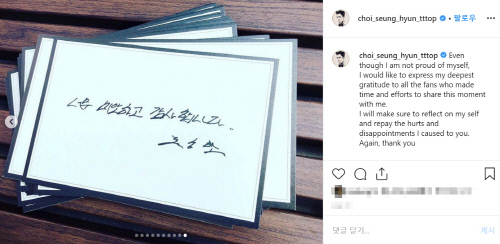 너무 미안하고 감사합니다.
choi_seung_hyun_tttop • 팔로우
choi_seung_hyun_tttop Even
though I am not proud of myself,
I would like to express my deepest
gratitude to all the fans who made
time and efforts to share this moment
with me.
I will make sure to reflect on my self
and repay the hurts and
disappointments I caused to you.
Again, thank you
댓글 달기...
게시